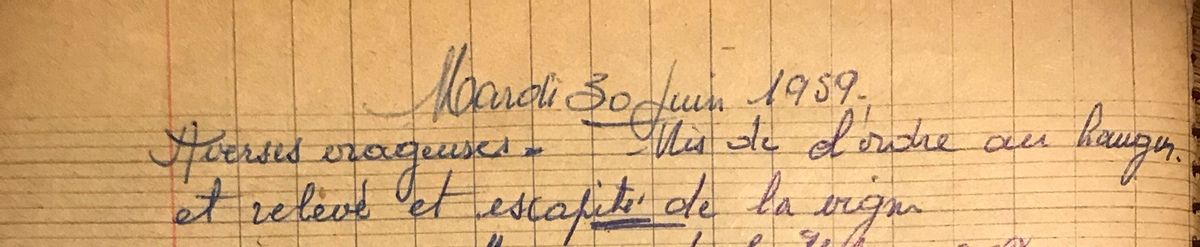 Mardi 30 Juin 1959.
Averses orageuses. Mis de d'ordre au hangar.
et relevé et escapité de la vigne